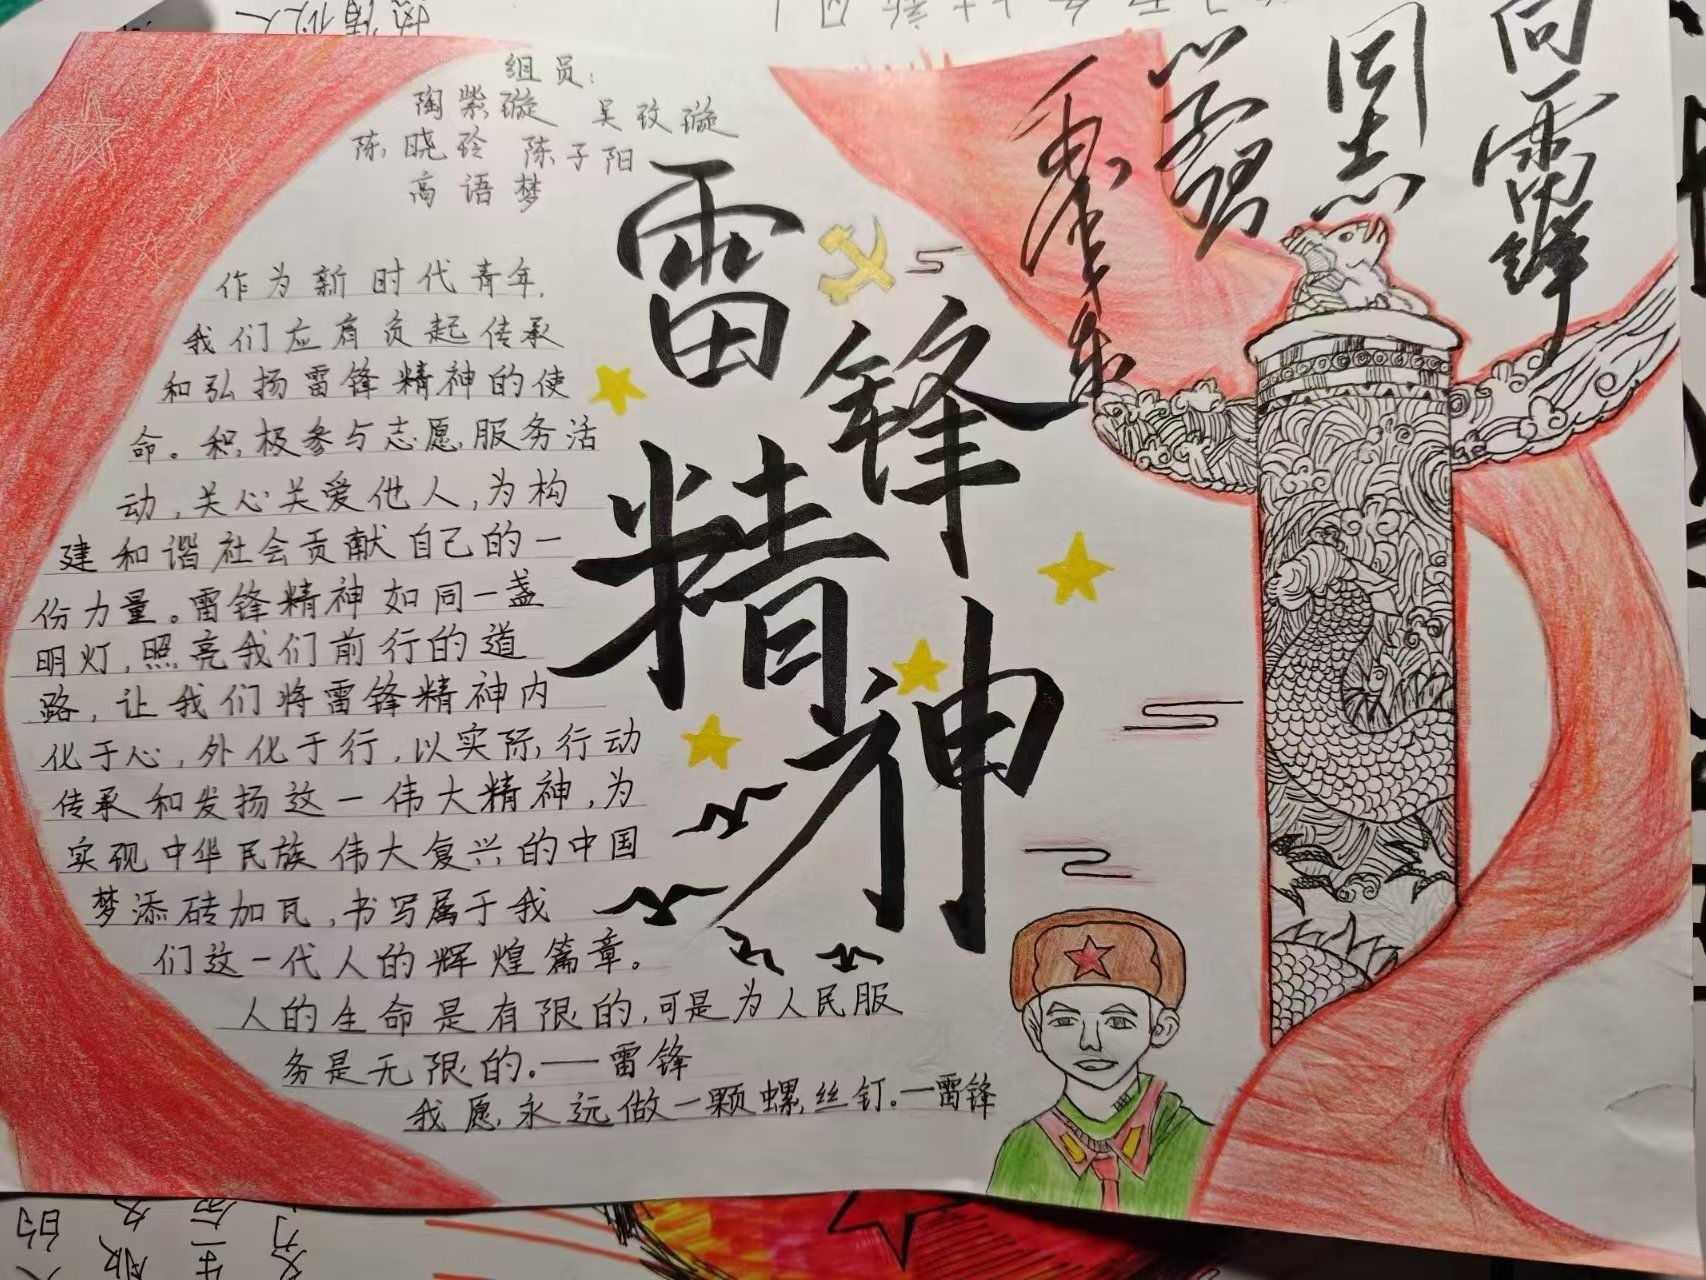 组员：
陶紫璇 吴玟璇
陈晓玲 陈子阳
高语梦
雷锋
精神
向雷锋
同志
学习
毛泽东
作为新时代青年，
我们应肩负起传承
和弘扬雷锋精神的使
命。积极参与志愿服务活
动，关心关爱他人，为构
建和谐社会贡献自己的一
份力量。雷锋精神如同一盏
明灯，照亮我们前行的道
路，让我们将雷锋精神内
化于心，外化于行，以实际行动
传承和发扬这一伟大精神，为
实现中华民族伟大复兴的中国
梦添砖加瓦，书写属于我
们这一代人的辉煌篇章。
人的生命是有限的，可是为人民服
务是无限的。——雷锋
我愿永远做一颗螺丝钉。—雷锋